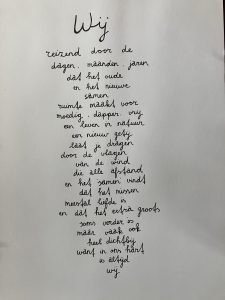 Wij
reizend door de
dagen, maanden, jaren
dat het oude
en het nieuwe
samen
ruimte maakt voor
moedig, dapper, vrij
een leven in natuur
een nieuw getij
laat je dragen
door de vlagen
van de wind
die alle afstand
en het samen vindt
dat het missen
meestal liefde is
en dat het extra groots
soms verder is
maar vaak ook
heel dichtbij
want in ons hart
is altijd
wij